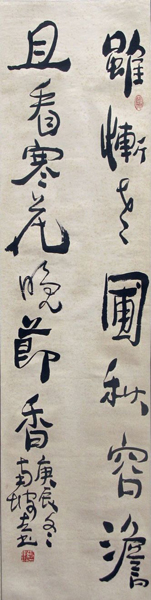 雖慚老圃秋容澹
且看寒花晚節香
庚辰冬
南坡